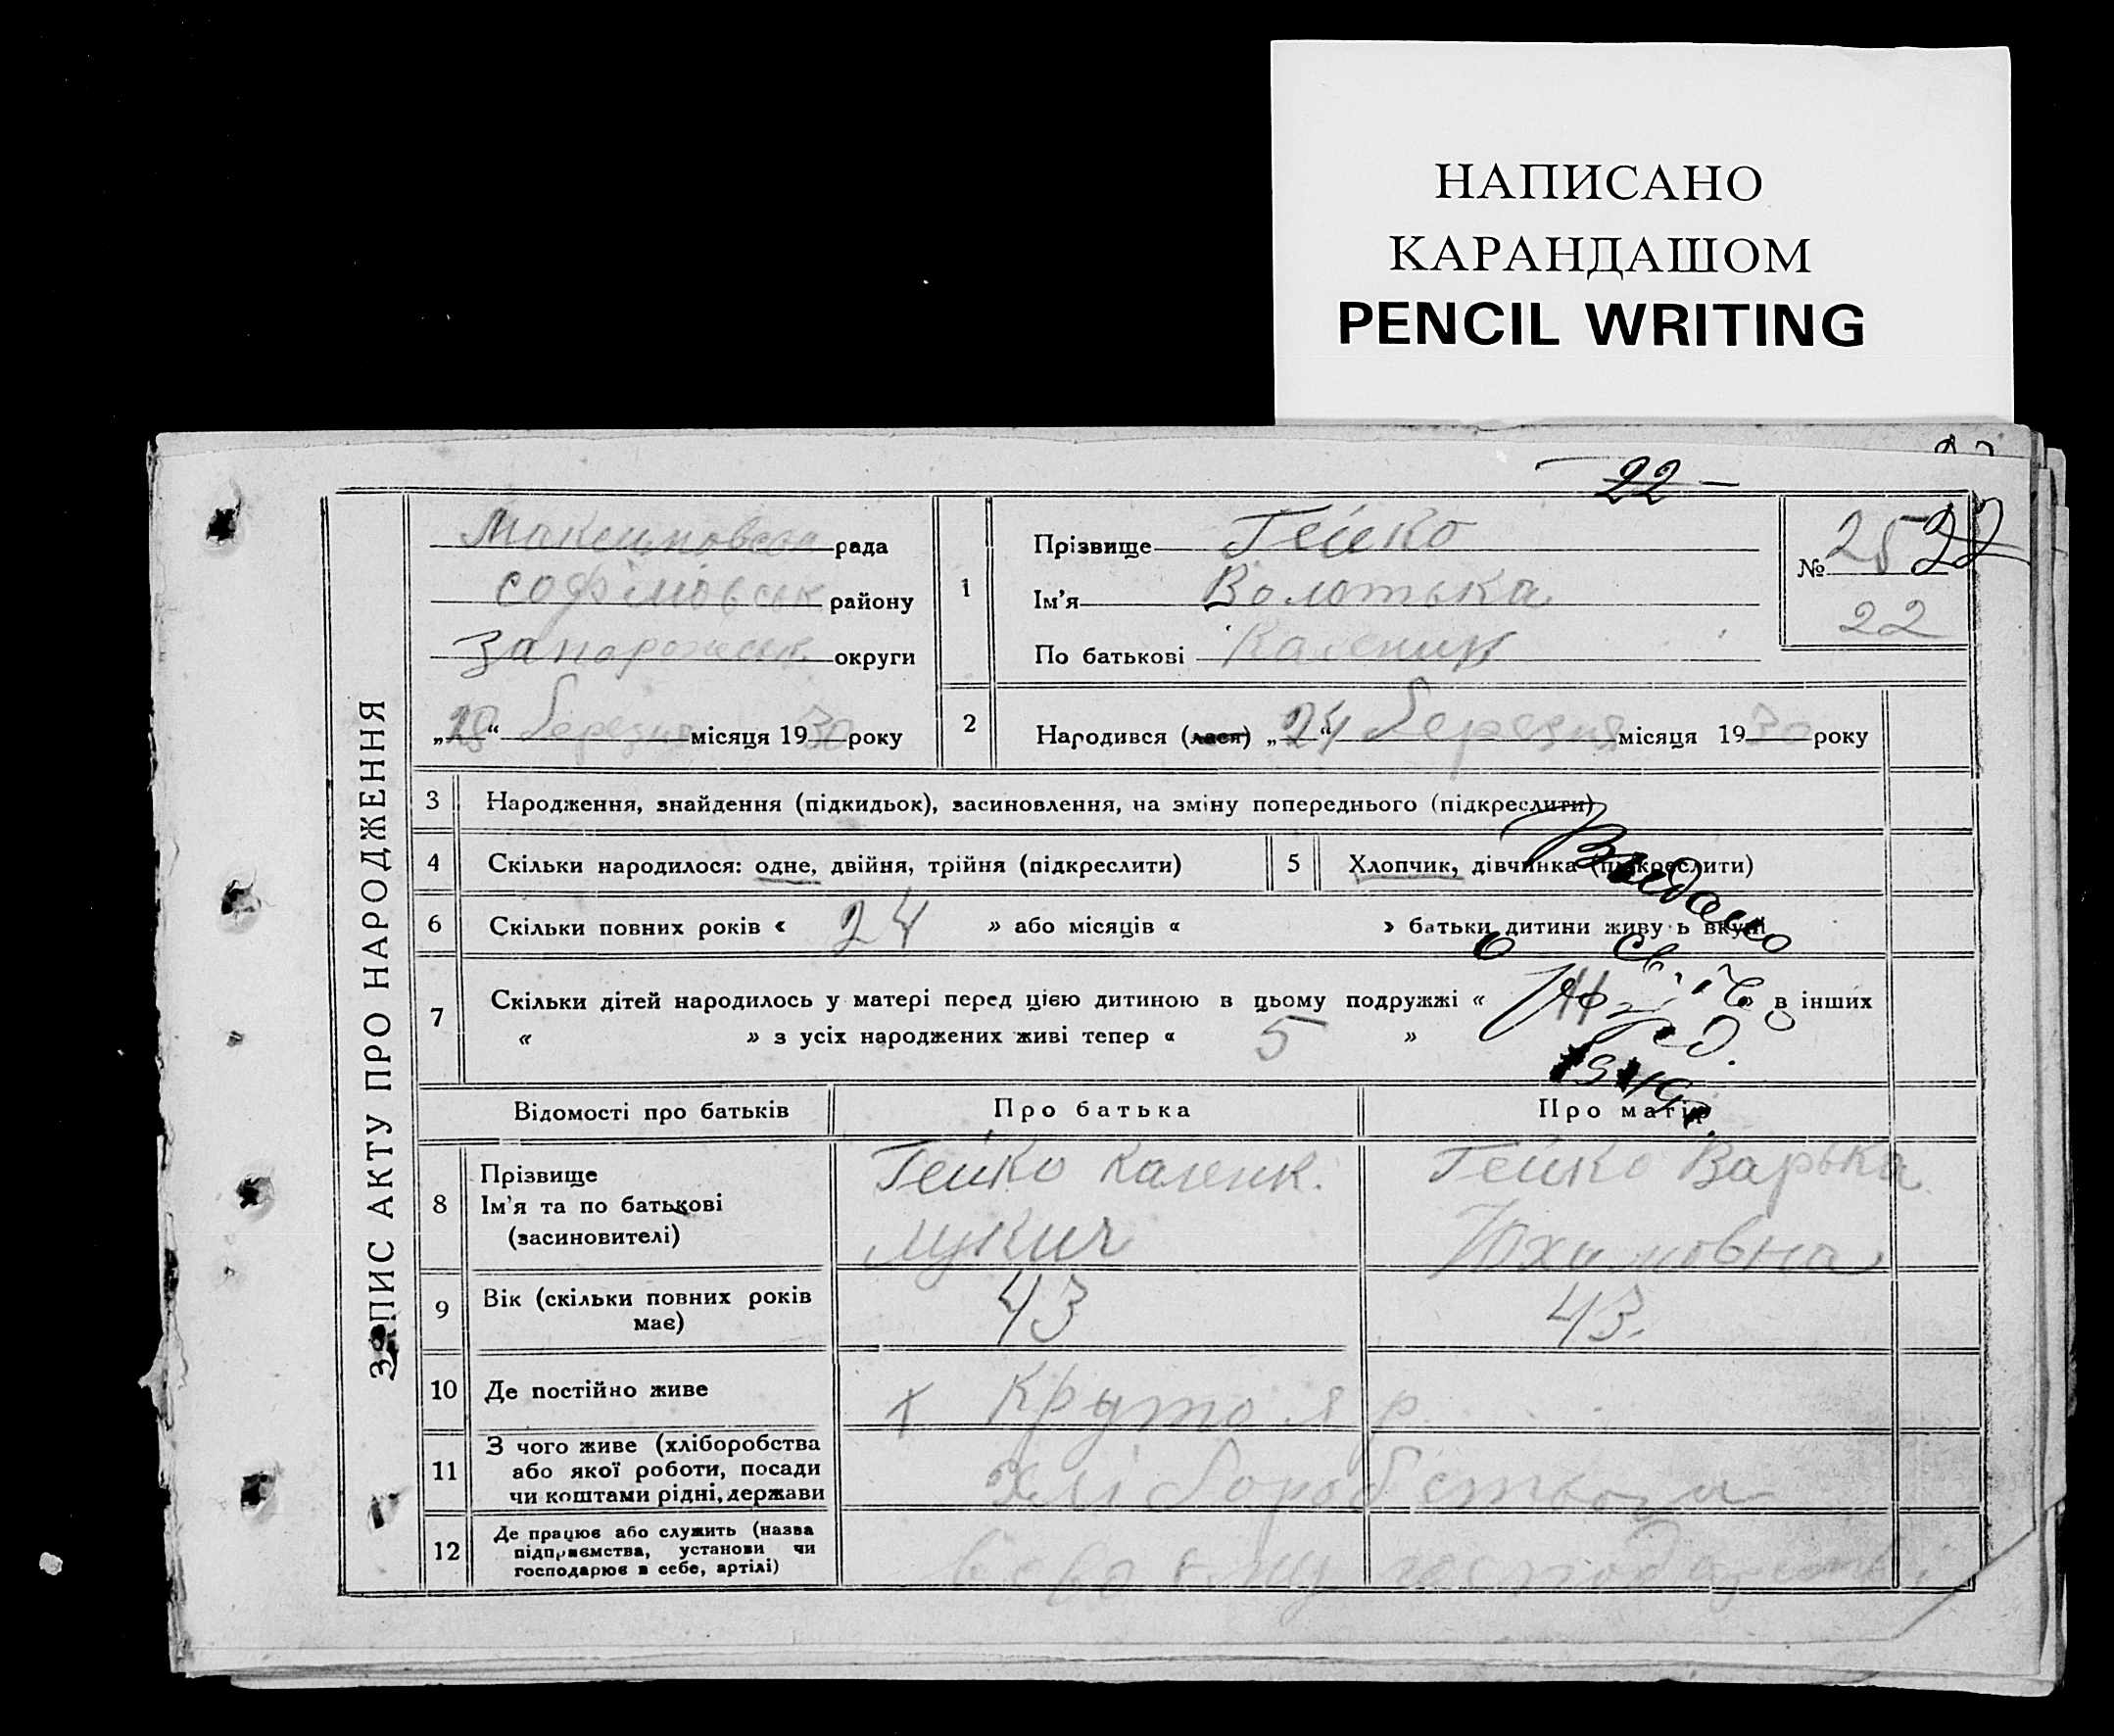 НАПИСАНО
КАРАНДАШОМ
PENCIL WRITING
22
ЗАПИС АКТУ ПРО НАРОДЖЕННЯ
рада
району
округи
„28“ березня місяця 1930 року
1
Прізвище Гейко
Ім'я
По батькові Каленик
№ 25 22
22
2
Народився (лася) „24“ березня місяця 1930 року
3 Народження, знайдення (підкидьок), засиновлення, на зміну попереднього (підкреслити)
4 Скільки народилося: одне, двійня, трійня (підкреслити)
5 Хлопчик, дівчинка (підкреслити)
6 Скільки повних років « 24 » або місяців « » батьки дитини живуть вкупі
7 Скільки дітей народилось у матері перед цією дитиною в цьому подружжі « » в інших
« » з усіх народжених живі тепер « 5 »
Відомості про батьків
Про батька
Про матір
8 Прізвище
Ім'я та по батькові
(засиновителі)
Гейко Каленик.
Лукич
Гейко Варька
Юхимовна
9 Вік (скільки повних років
має)
43
43.
10 Де постійно живе
х Крутояр
11 З чого живе (хліборобства
або якої роботи, посади
чи коштами рідні, держави
12 Де працює або служить (назва
підприємства, установи чи
господарює в себе, артілі)